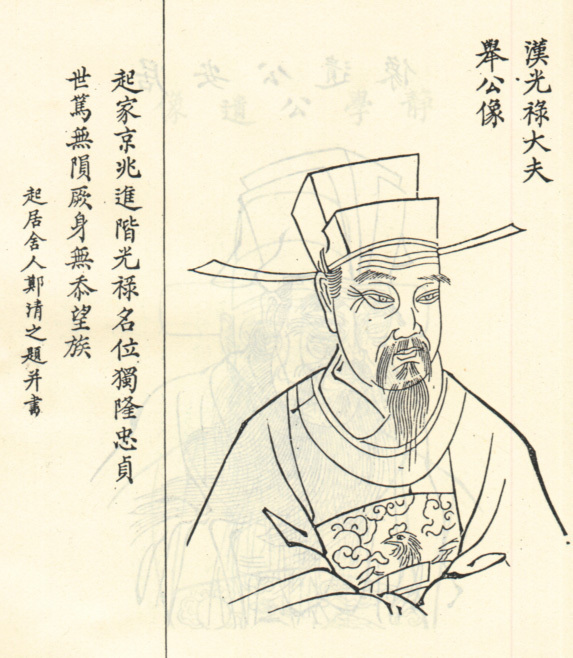 漢光祿大夫
舉公像
起家京兆進階光祿名位獨隆忠貞
世篤無隕厥身無忝望族
起居舍人鄭清之題并書